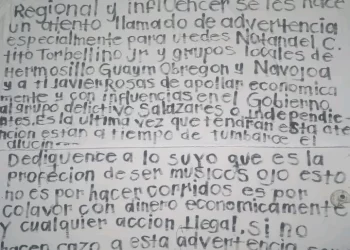 Regional y influencer se les hace
un atento llamado de advertencia
especialmente para utedes Natanael C.
tito Torbellino Jr y grupos locales de
Hermosillo Guaym Obregon y Navojoa
y a ti Javier Rosas de apoliar economica
mente y con influencias en el Gobierno
al grupo delictivo Salazares o independie-
ntes. Es la ultima vez que tendran esta ate
ncion estan a tiempo de tumbarce el
alucin---
Dediquence a lo suyo que es la
profecion de ser musicos ojo esto
no es por hacer corridos es por
colavor con dinero economicamente
y cualquier accion Ilegal, si no
hacen cazo a esta advertencia